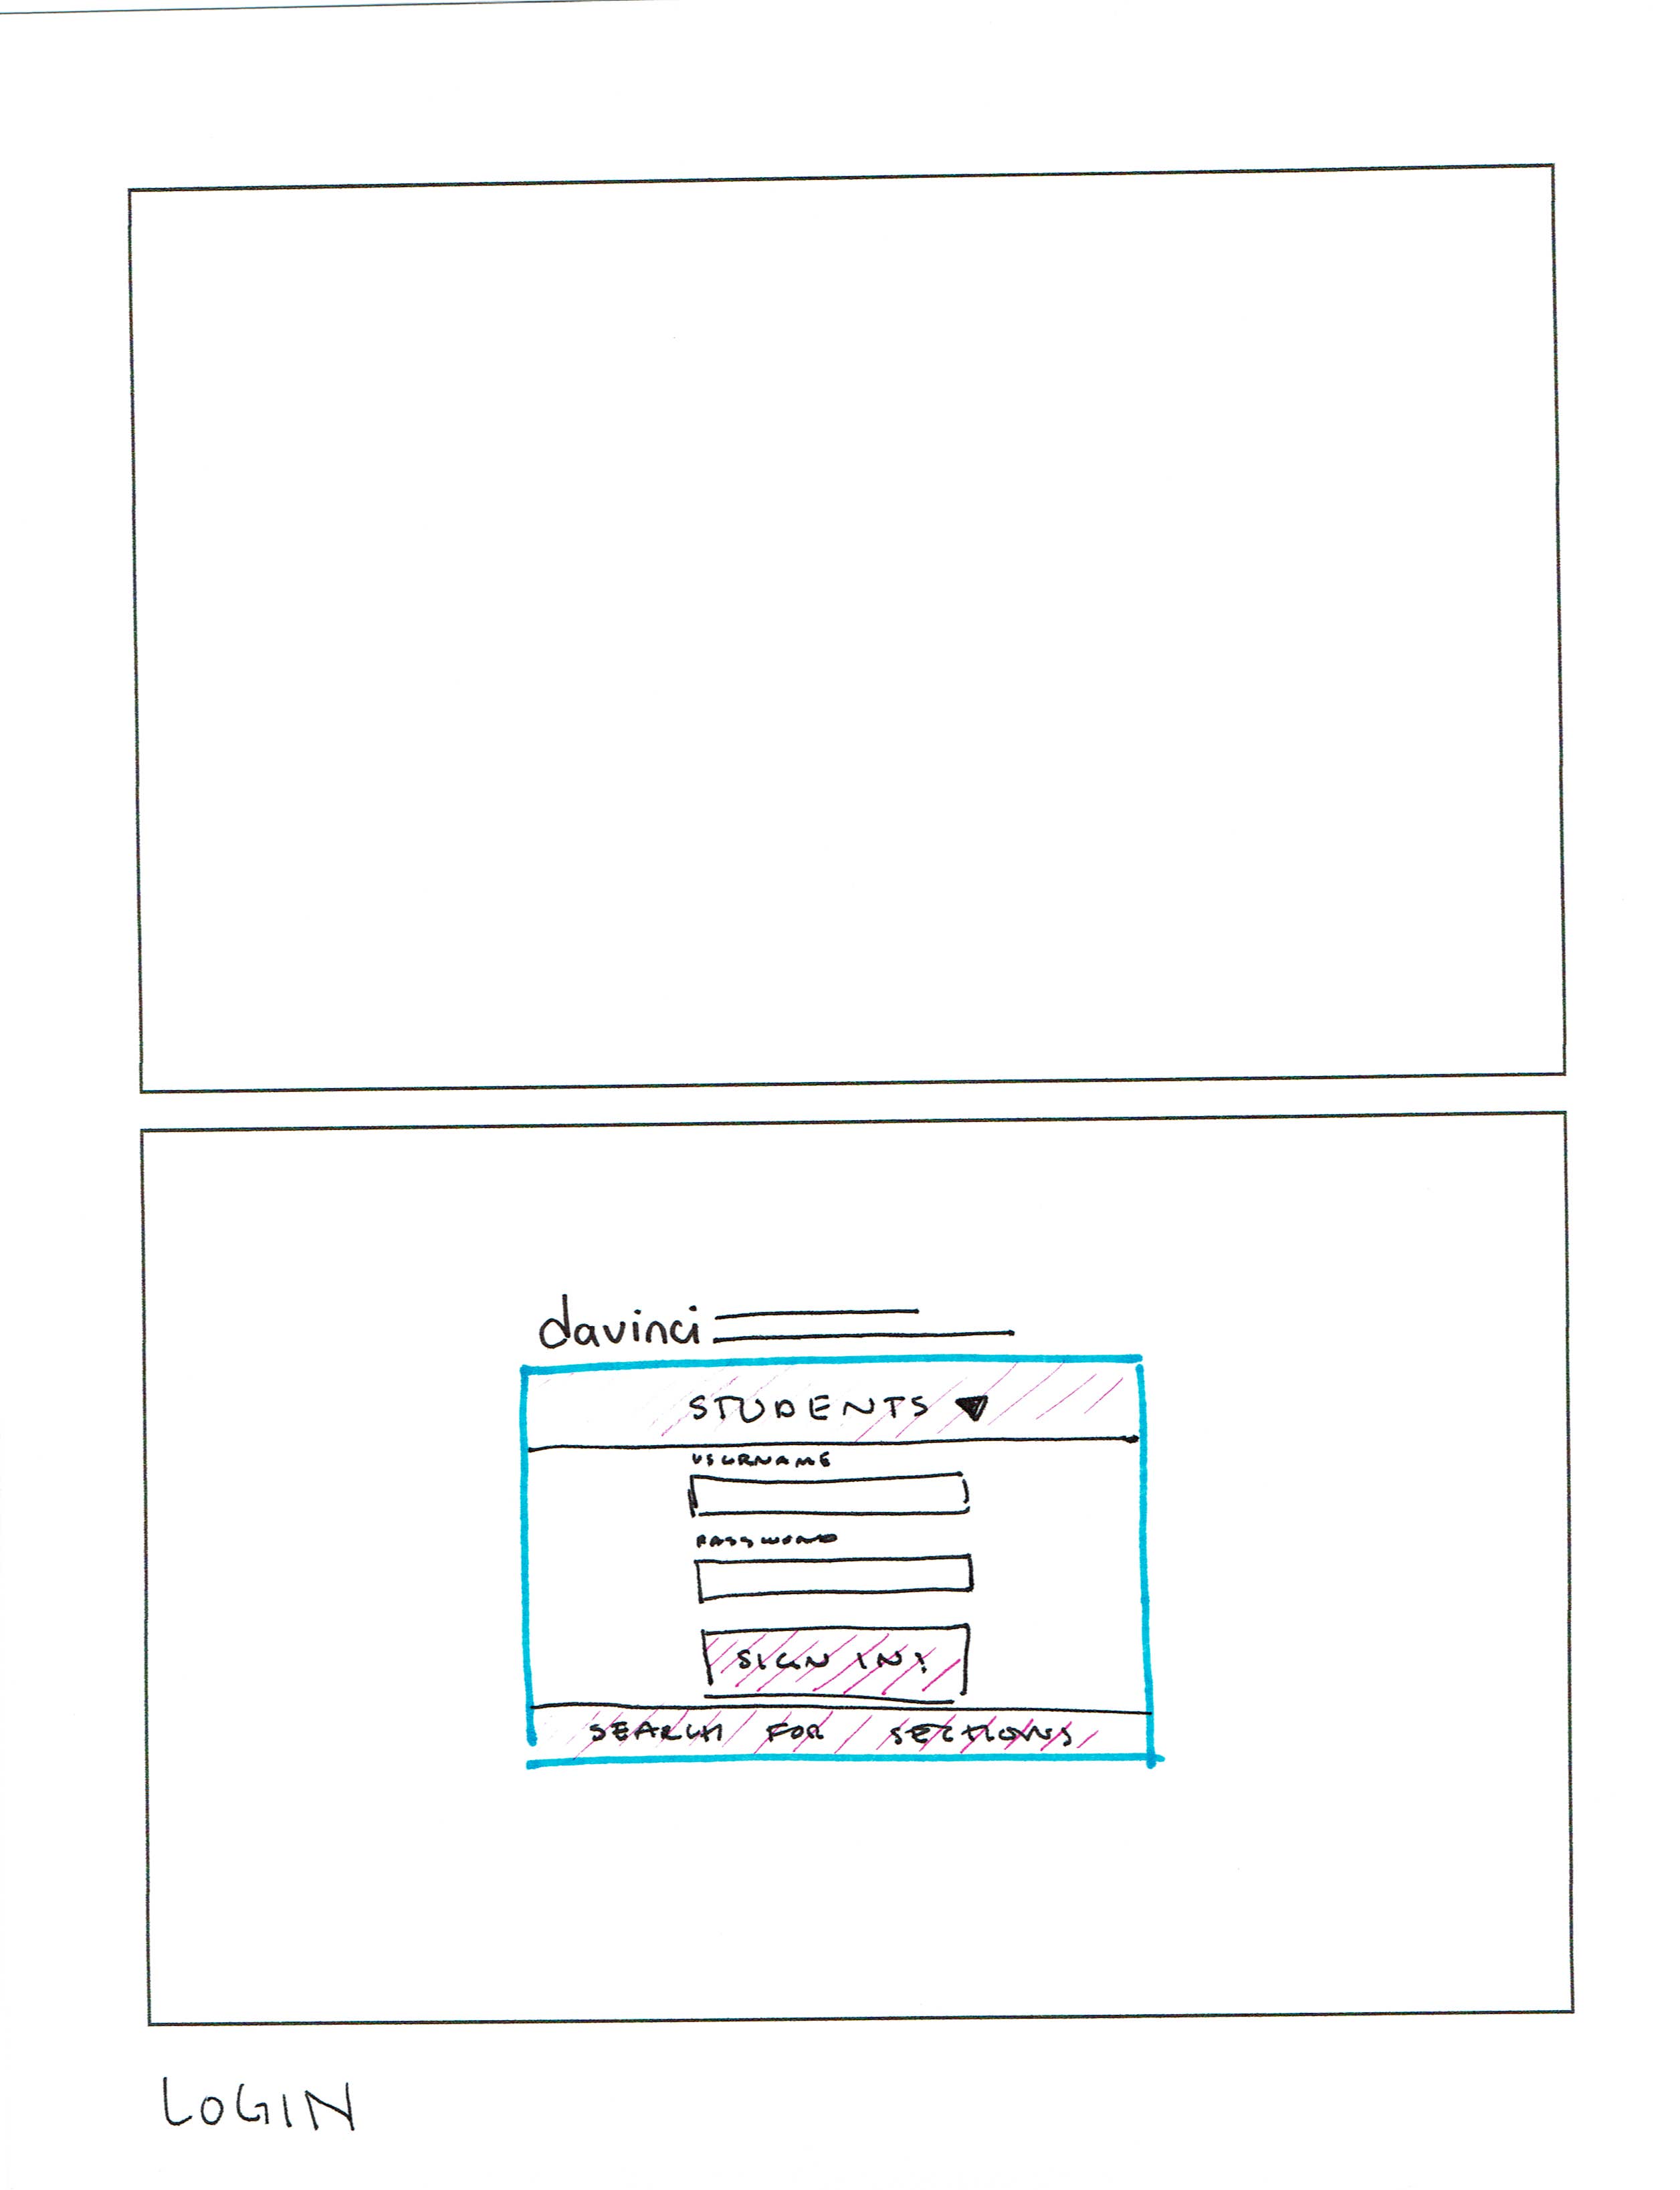 davinci
STUDENTS
USERNAME
PASSWORD
SIGN IN!
SEARCH FOR SECTIONS
LOGIN